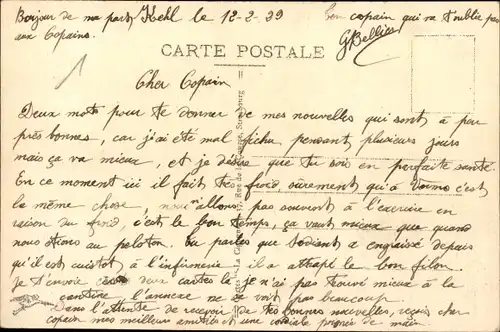 Bonjour de ma part Kehl le 12-2-29
aux Copains.
Ton copain qui ne t'oublie pas
GBellier
CARTE POSTALE
1
Cher Copain
Deux mots pour te donner de mes nouvelles qui sont à peu
près bonnes, car j'ai été mal fichu pendant plusieurs jours
mais ça va mieux, et je désire que tu sois en parfaite santé.
En ce moment ici il fait très froid, sûrement qu'à c'est
la même chose, nous allons pas souvent à l'exercice en
raison du froid, c'est le bon temps, ça vaut mieux que quand
nous étions au peloton. Tu parles que a engraissé depuis
qu'il est cuistot à l'infirmerie, il a attrapé le bon filon.
Je t'envoie ces deux cartes là je n'ai pas trouvé mieux à la
cantine l'annexe ne se voit pas beaucoup.
Dans l'attente de recevoir de tes bonnes nouvelles, reçois cher
copain mes meilleurs amitiés et une cordiale poignée de main